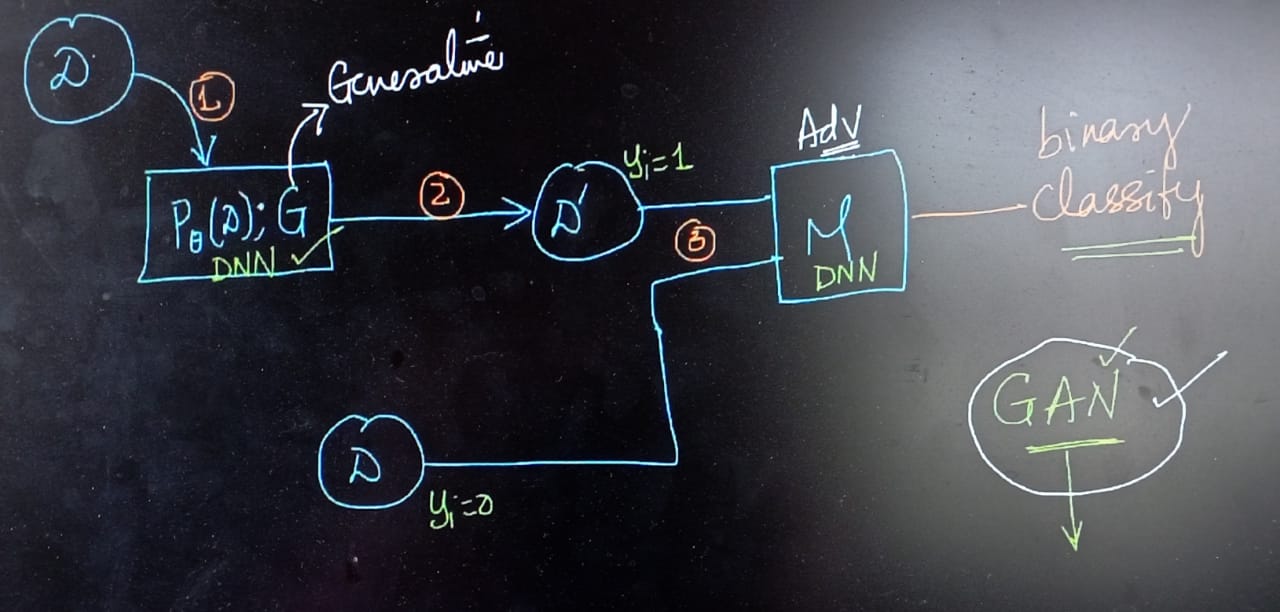 D
①
Generative
P_θ(D); G
DNN ✓
②
D'
y_i=1
③
Adv
M
DNN
binary
classify
D
y_i=0
GAN